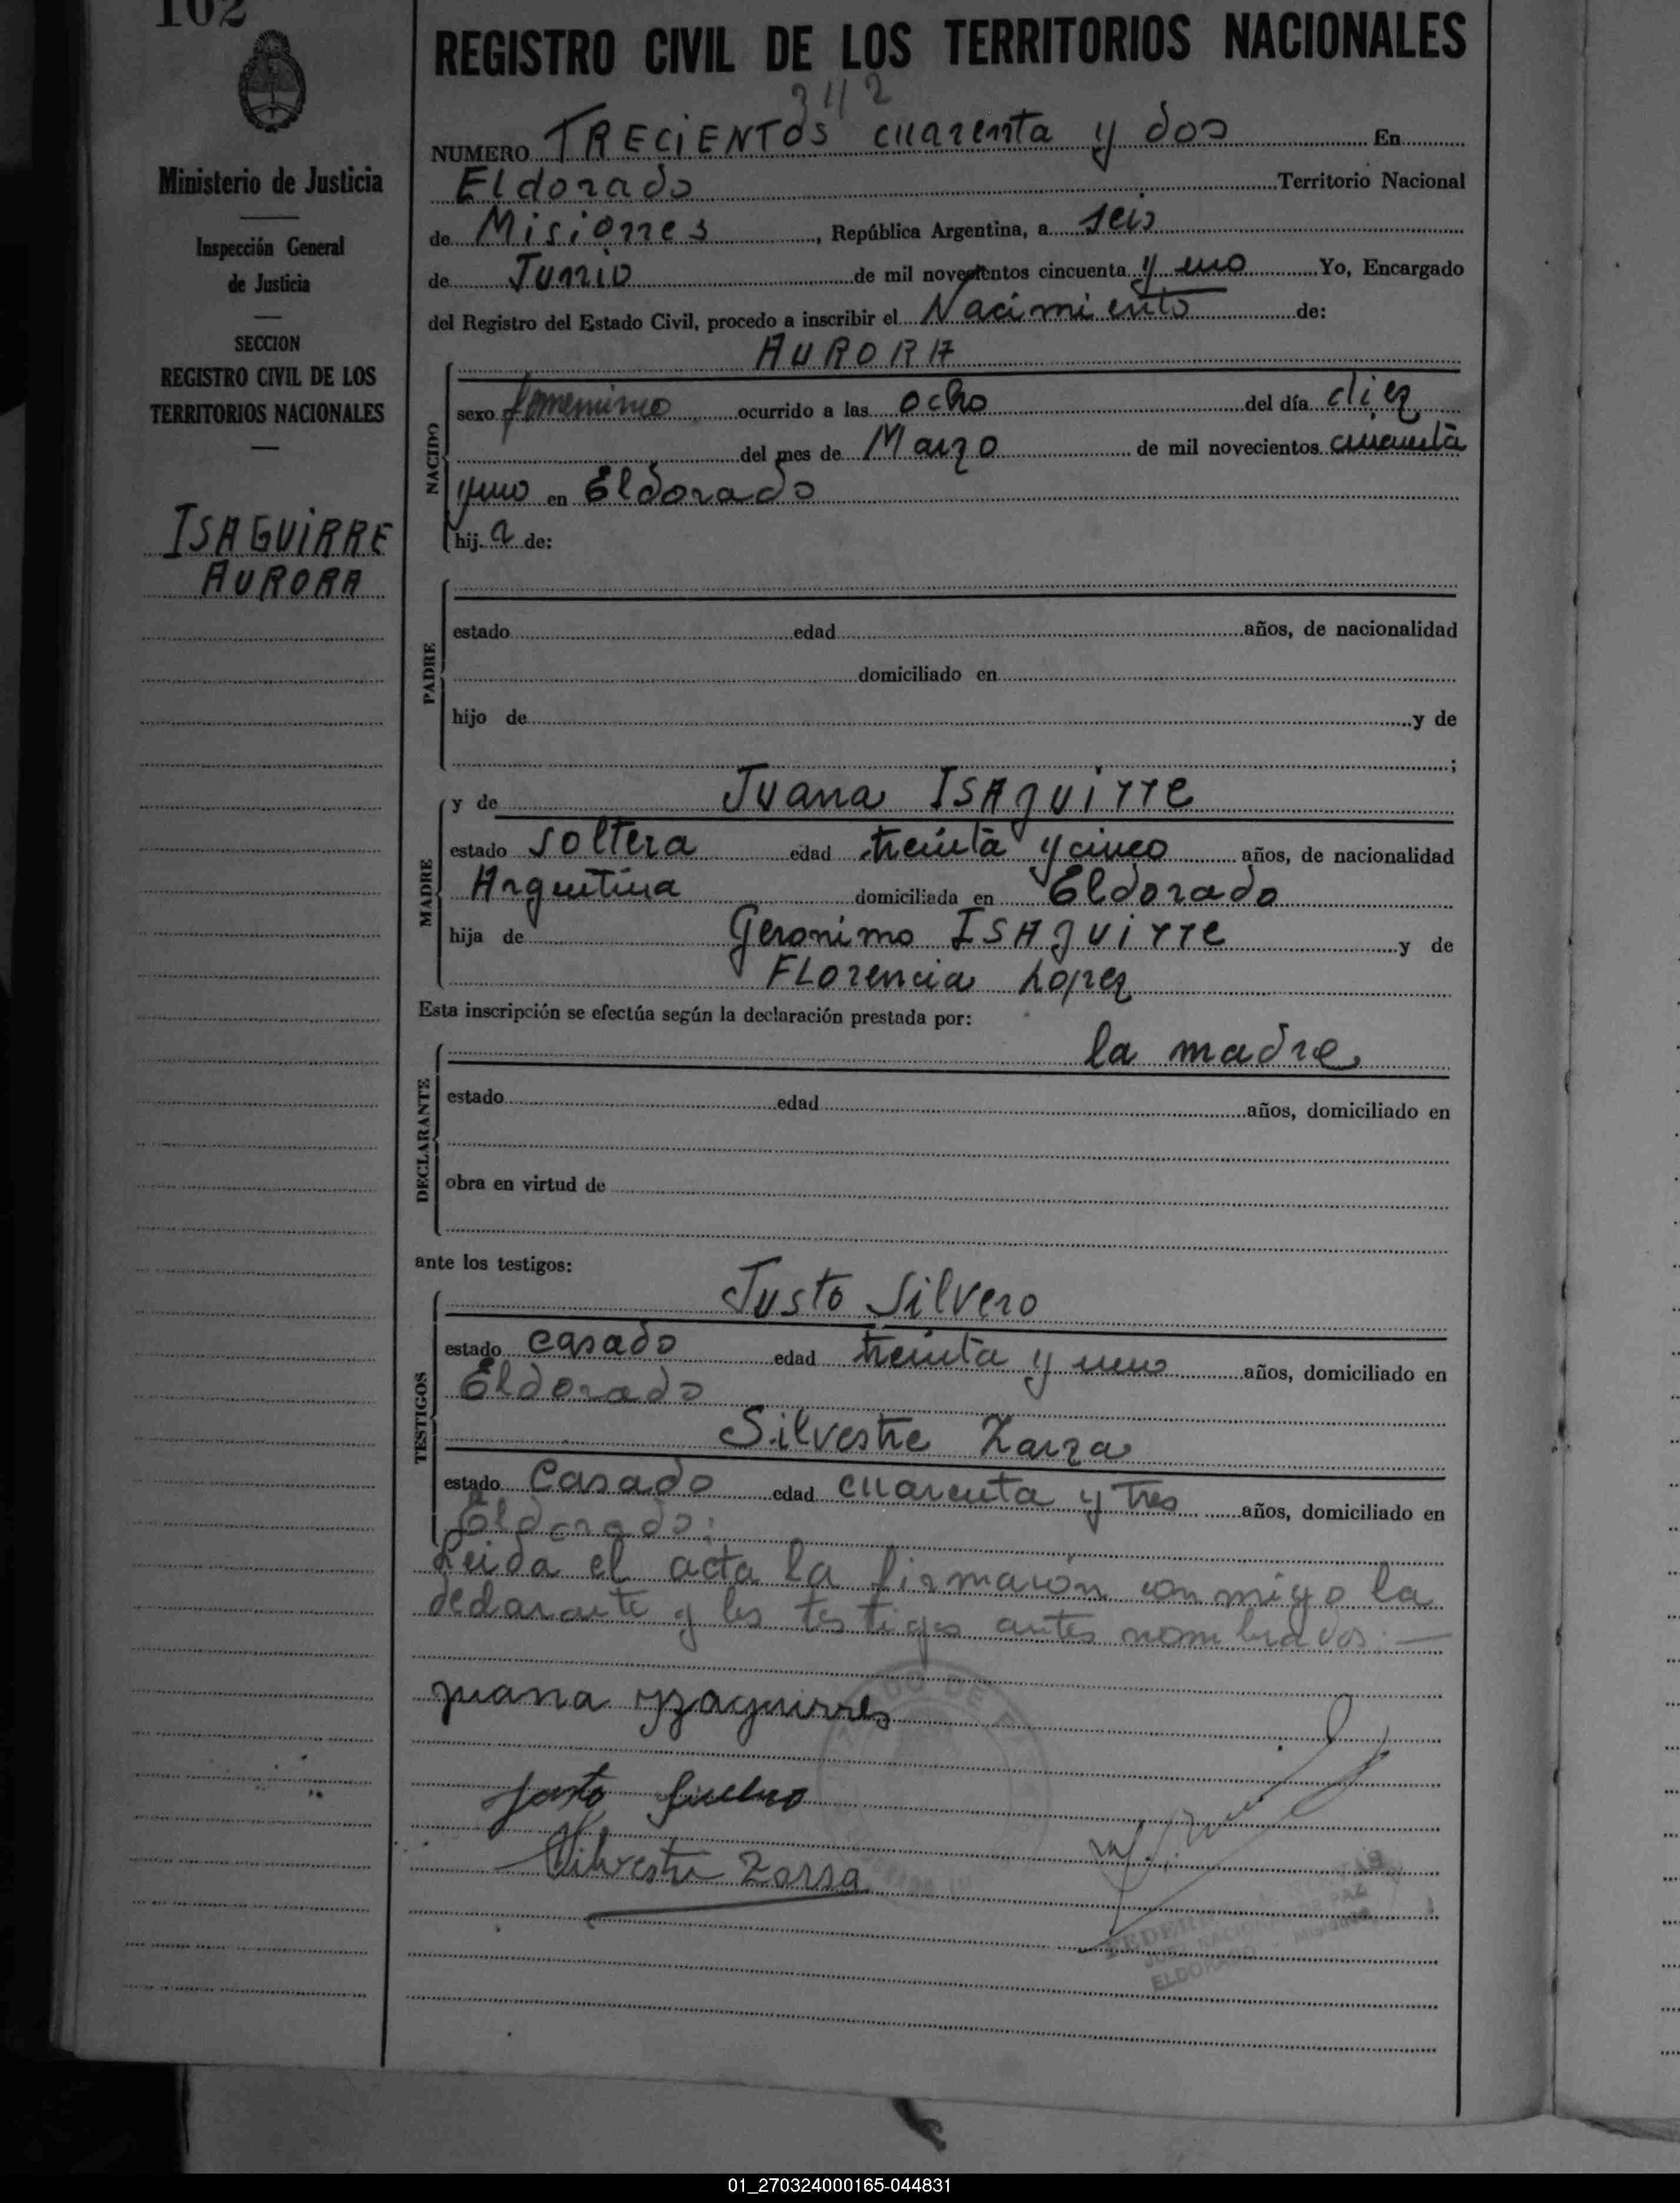 102
REGISTRO CIVIL DE LOS TERRITORIOS NACIONALES
342
NUMERO TRECIENTOS cuarenta y dos En
Eldorado Territorio Nacional
de Misiones, República Argentina, a seis
de Junio de mil novecientos cincuenta y uno Yo, Encargado
del Registro del Estado Civil, procedo a inscribir el Nacimiento de:
Ministerio de Justicia
Inspección General
de Justicia
SECCION
REGISTRO CIVIL DE LOS
TERRITORIOS NACIONALES
ISAGUIRRE
AURORA
NACIDO
AURORA
sexo femenino ocurrido a las ocho del día diez
del mes de Marzo de mil novecientos cincuenta
y uno en Eldorado
hij a de:
PADRE
estado edad años, de nacionalidad
domiciliado en
hijo de y de
;
MADRE
y de Juana ISAguirre
estado soltera edad treinta y cinco años, de nacionalidad
Argentina domiciliada en Eldorado
hija de Geronimo ISAguirre y de
Florencia Lopez
Esta inscripción se efectúa según la declaración prestada por:
DECLARANTE
la madre
estado edad años, domiciliado en
obra en virtud de
ante los testigos:
TESTIGOS
Justo Silvero
estado casado edad treinta y uno años, domiciliado en
Eldorado
Silvestre Zarza
estado Casado edad cuarenta y tres años, domiciliado en
Eldorado:
Leida el acta la firmaron conmigo la
declarante y los testigos antes nombrados.—
juana yzaguirres
Justo Silvero
Silvestre Zarsa
JUEZ NACIONAL DE PAZ
ELDORADO - Misiones
01_270324000165-044831